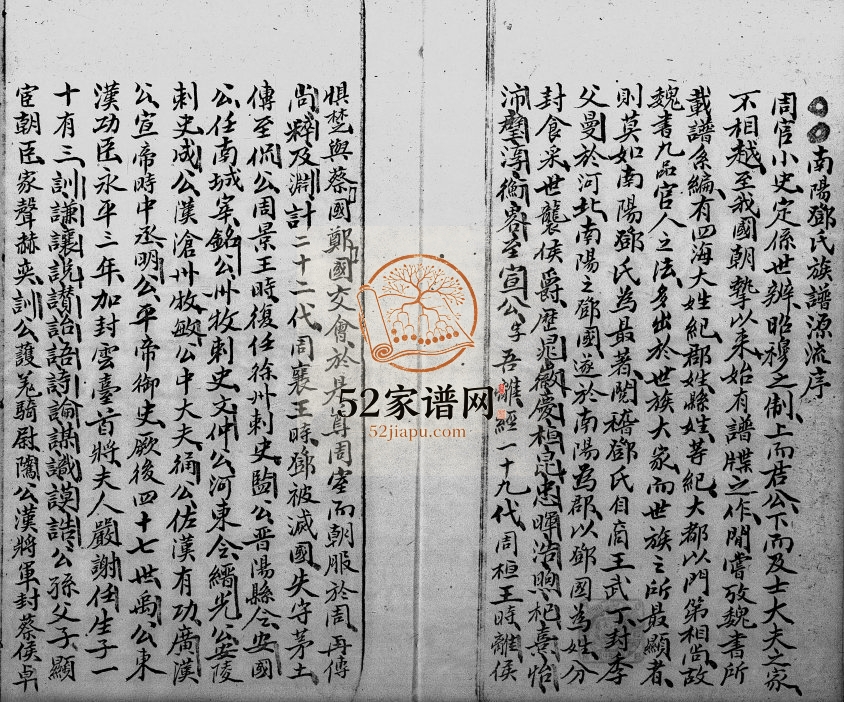 南陽鄧氏族譜源流序
周官小史定係世辨昭穆之制上而君公下而及士大夫之家
不相越至我國朝摯以來始有譜牒之作間嘗攷魏書所
載譜系編有四海大姓紀郡姓縣姓等紀大都以門第相尚故
魏書九品官人之法多出於世族大家而世族之所最顯者
則莫如南陽鄧氏為最著閱稽鄧氏自商王武丁封季
父曼於河北南陽之鄧國遂於南陽為郡以鄧國為姓分
封食采世襲侯爵歷晁巖慶桓定忠暉浩煦杞熹怡
沛 淳衡客至宣公字吾離經一十九代周桓王時離侯
惧楚與蔡國鄭國交會於是尊周室而朝服於周再傳
尚粹及淵計二十二代周襄王時鄧被滅國失守茅土
傳至侃公周景王時復任徐州刺史監公晋陽縣令安國
公任南城宰銘公州牧刺史文仲公河東令縉光公安陵
刺史成公漢滄州牧 公中大夫 公佐漢有功廣漢
公宣帝時中丞明公平帝御史厥後四十七世禹公東
漢功臣永平三年加封雲臺首將夫人嚴謝任生子一
十有三訓謙讓説讃詥語詩論謀識謨誥公孫父子顯
宦朝臣家聲赫奕訓公護羌騎尉隲公漢將軍封蔡侯卓
52家谱网
52jiapu.com